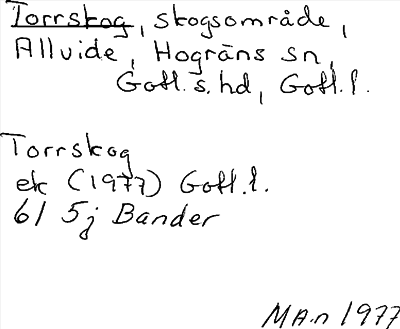 Torrskog, skogsområde,
Allvide, Hogräns sn,
Gotl. s. hd, Gotl. l.
Torrskog
ek (1977) Gotl. l.
6I 5j Bander
MA-n 1977